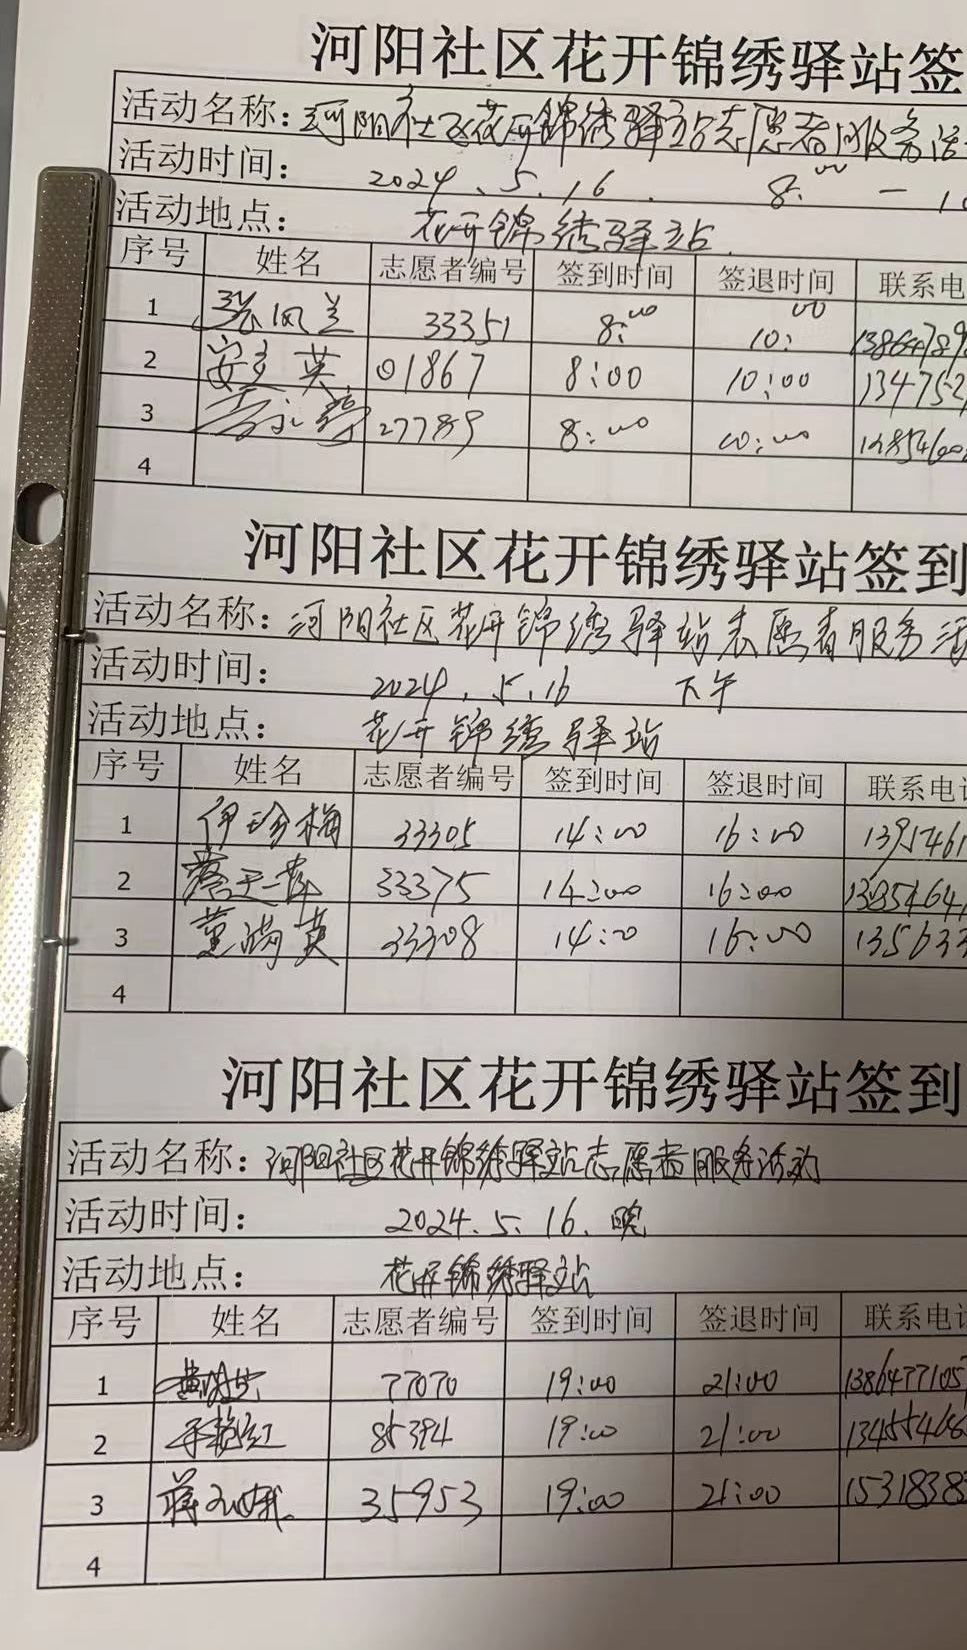 河阳社区花开锦绣驿站签
活动名称：河阳社区花开锦绣驿站志愿者服务活
活动时间： 2024.5.16. 8:00 — 10
活动地点： 花开锦绣驿站
序号 姓名 志愿者编号 签到时间 签退时间 联系电
1 张凤兰 33351 8:00 10:00
2 安立英 01867 8:00 10:00 13475
3 27789 8:00 10:00
4
河阳社区花开锦绣驿站签到
活动名称：河阳社区花开锦绣驿站志愿者服务活
活动时间： 2024.5.16 下午
活动地点： 花开锦绣驿站
序号 姓名 志愿者编号 签到时间 签退时间 联系电话
1 伊珍梅 33305 14:00 16:00
2 33375 14:00 16:00
3 董满英 33308 14:00 16:00 135633
4
河阳社区花开锦绣驿站签到
活动名称：河阳社区花开锦绣驿站志愿者服务活动
活动时间： 2024.5.16.晚
活动地点： 花开锦绣驿站
序号 姓名 志愿者编号 签到时间 签退时间 联系电话
1 77070 19:00 21:00 1386477105
2 85394 19:00 21:00
3 35953 19:00 21:00 1531838
4